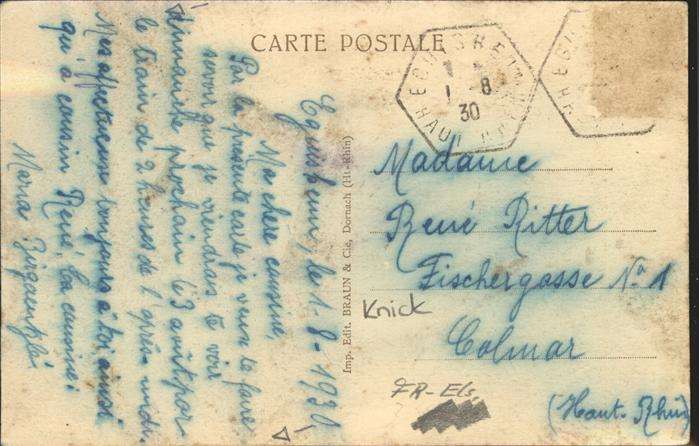 CARTE POSTALE
Eguisheim, le 1-8-1930
Ma chère cousine,
Par la présente carte je veux te faire
savoir que je viendrais te voir
dimanche prochain le 3 août par
le train de 2 heures de l'après-midi
Mes affectueux bonjours à toi ainsi
qu'à cousin René, ta cousine:
Maria
Imp. Edit. BRAUN & Cie, Dornach (Ht-Rhin)
1 - 8
30
Madame
René Ritter
Fischergasse No 1
Colmar
(Haut-Rhin)
Knick
FR-Els